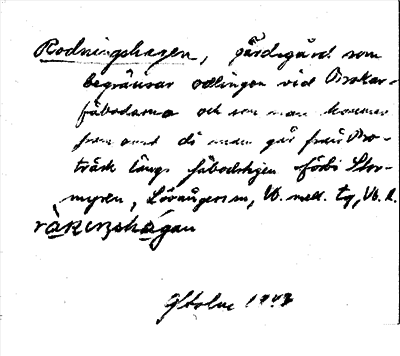 Rodningshagen, gärdsgård som
begränsar odlingen vid Brokar-
fäbodarna och som man kommer
fram emot då man går från Bro-
träsk längs fäbodstigen förbi Stor-
myren, Lövångersm, Vb. mell. tg, Vb. l.
Holm 1943